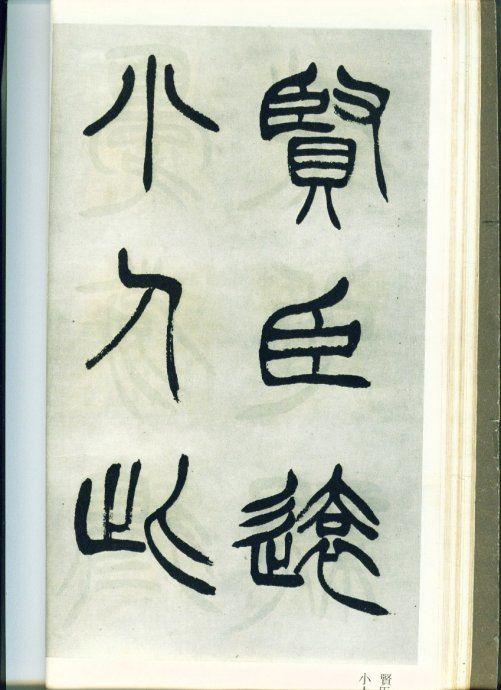 賢臣遠
小人此
賢臣
小人